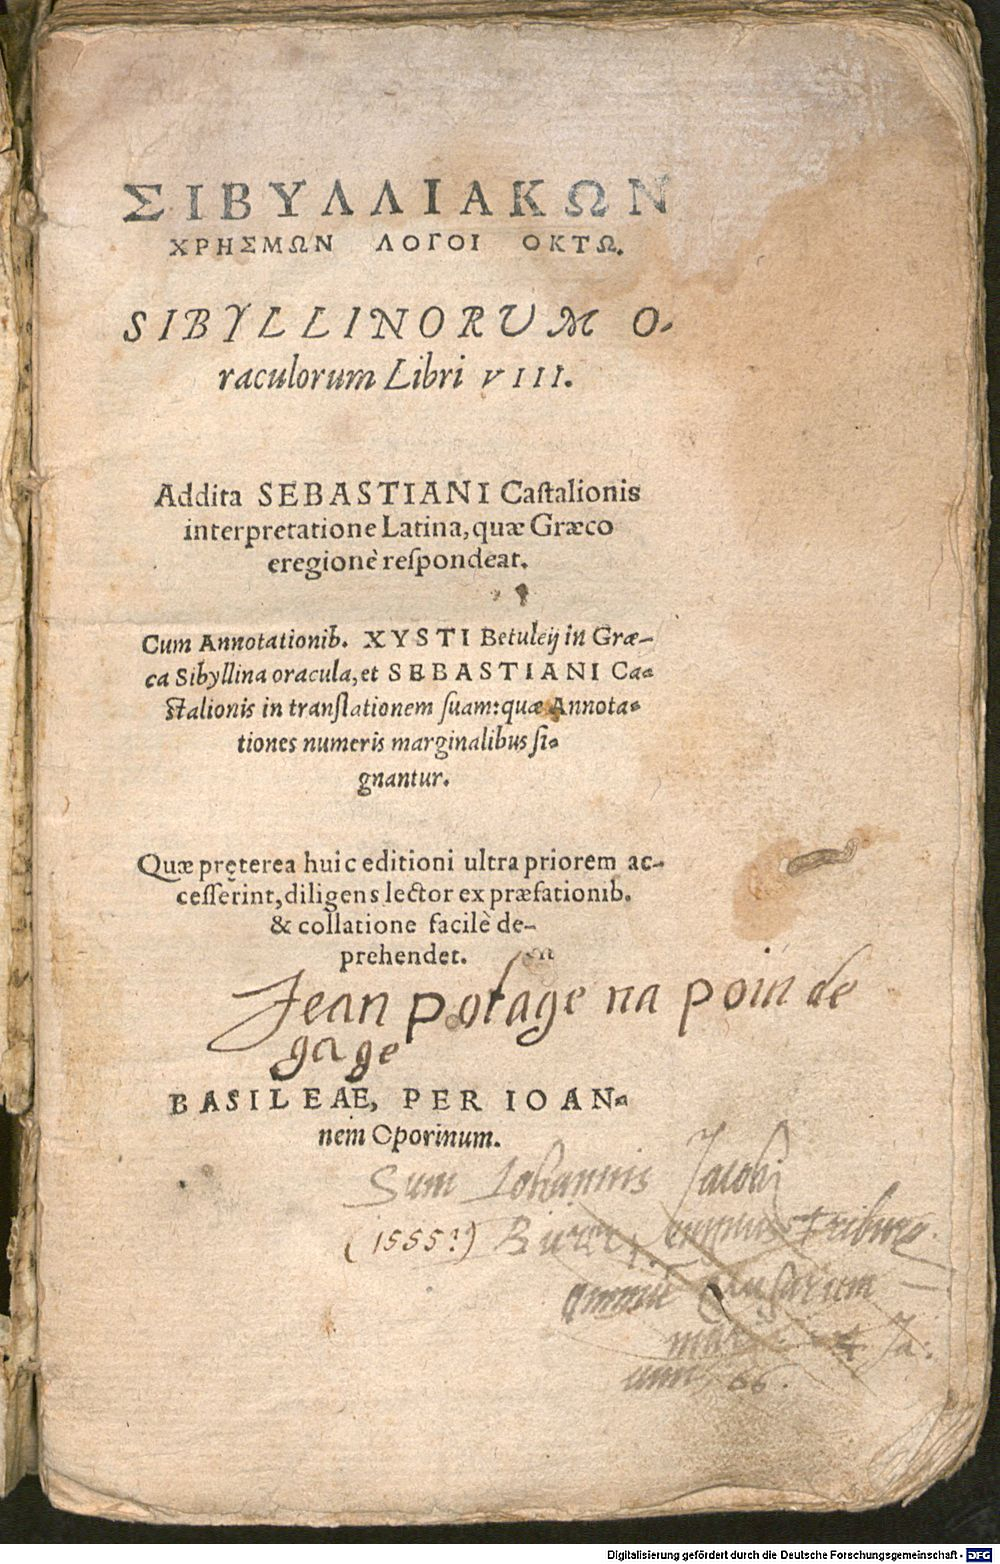 ΣΙΒΥΛΛΙΑΚΩΝ
ΧΡΗΣΜΩΝ ΛΟΓΟΙ ΟΚΤΩ.
SIBYLLINORUM O-
raculorum Libri VIII.
Addita SEBASTIANI Caſtalionis
interpretatione Latina, quæ Græco
eregionè reſpondeat.
Cum Annotationib. XYSTI Betuleij in Græ-
ca Sibyllina oracula, et SEBASTIANI Ca-
ſtalionis in tranſlationem ſuam: quæ Annota-
tiones numeris marginalibus ſi-
gnantur.
Quæ pręterea huic editioni ultra priorem ac-
ceſſerint, diligens lector ex præfationib.
& collatione facilè de-
prehendet.
Jean potage na poin de
gage
BASILEAE, PER IOAN-
nem Oporinum.
Sum Iohannis Jacobi
(1555?)
66.
Digitalisierung gefördert durch die Deutsche Forschungsgemeinschaft - DFG